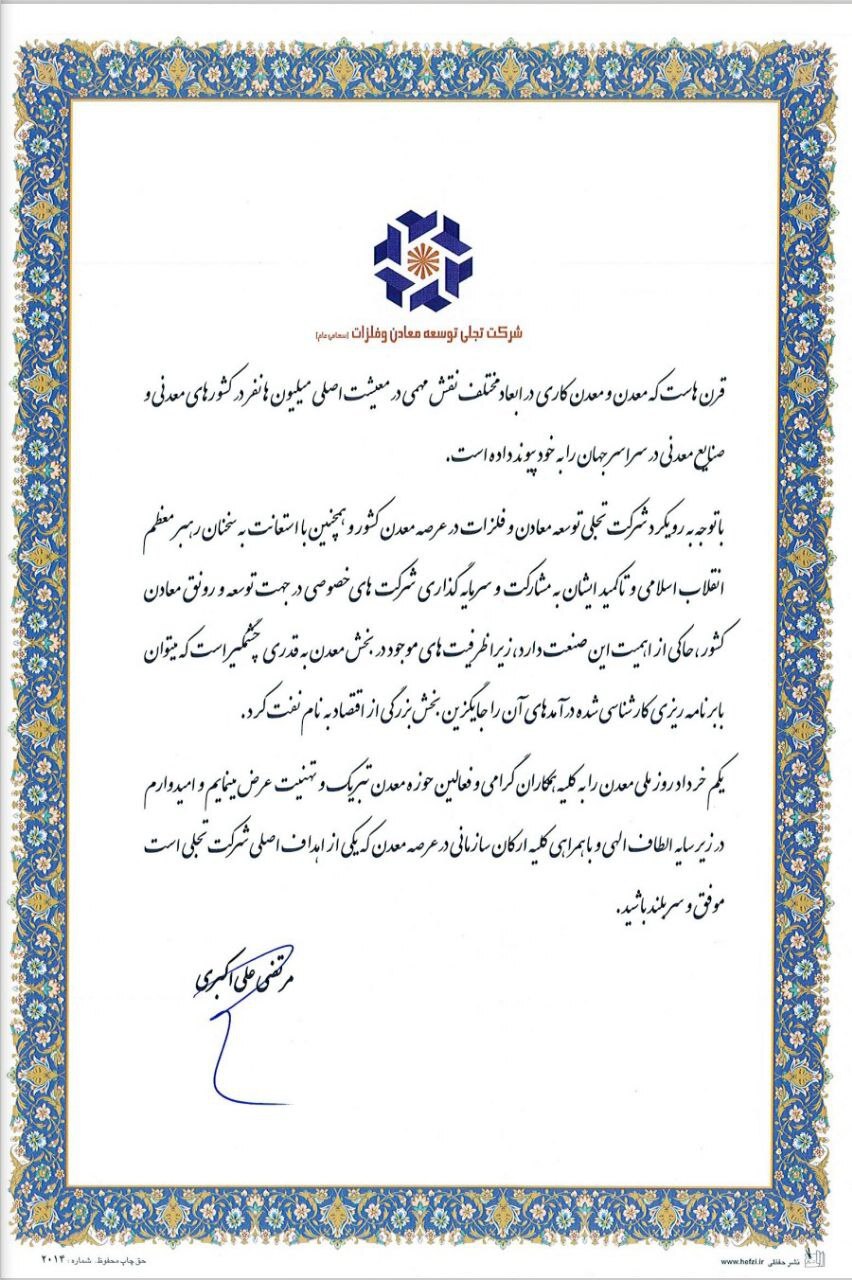 شرکت تجلی توسعه معادن و فلزات (سهامی عام)
قرن هاست که معدن و معدن کاری در ابعاد مختلف نقش مهمی در معیشت اصلی میلیون ها نفر در کشورهای معدنی و
صنایع معدنی در سراسر جهان را به خود پیوند داده است.
باتوجه به رویکرد شرکت تجلی توسعه معادن و فلزات در عرصه معدن کشور و همچنین با استعانت به سخنان رهبر معظم
انقلاب اسلامی و تاکید ایشان به مشارکت و سرمایه گذاری شرکت های خصوصی در جهت توسعه و رونق معادن
کشور، حاکی از اهمیت این صنعت دارد، زیرا ظرفیت های موجود در بخش معدن به قدری چشمگیر است که میتوان
با برنامه ریزی کارشناسی شده درآمدهای آن را جایگزین بخش بزرگی از اقتصاد به نام نفت کرد.
یکم خرداد روز ملی معدن را به کلیه همکاران گرامی و فعالین حوزه معدن تبریک و تهنیت عرض مینمایم و امیدوارم
در زیر سایه الطاف الهی و با همراهی کلیه ارکان سازمانی در عرصه معدن که یکی از اهداف اصلی شرکت تجلی است
موفق و سربلند باشید.
مرتضی علی اکبری
نشر حفظی www.hefzi.ir
حق چاپ محفوظ. شماره: ۲۰۱۴